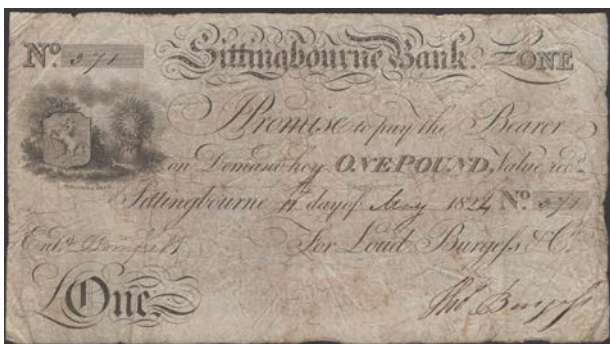 No. 371 Sittingbourne Bank. £ONE
I Promise to pay the Bearer
on Demand here ONE POUND, Value recd.
Sittingbourne 11th day of May 1824 No. 371
Entd. For Loud, Burgess & Co.
£One. Thos. Burgess